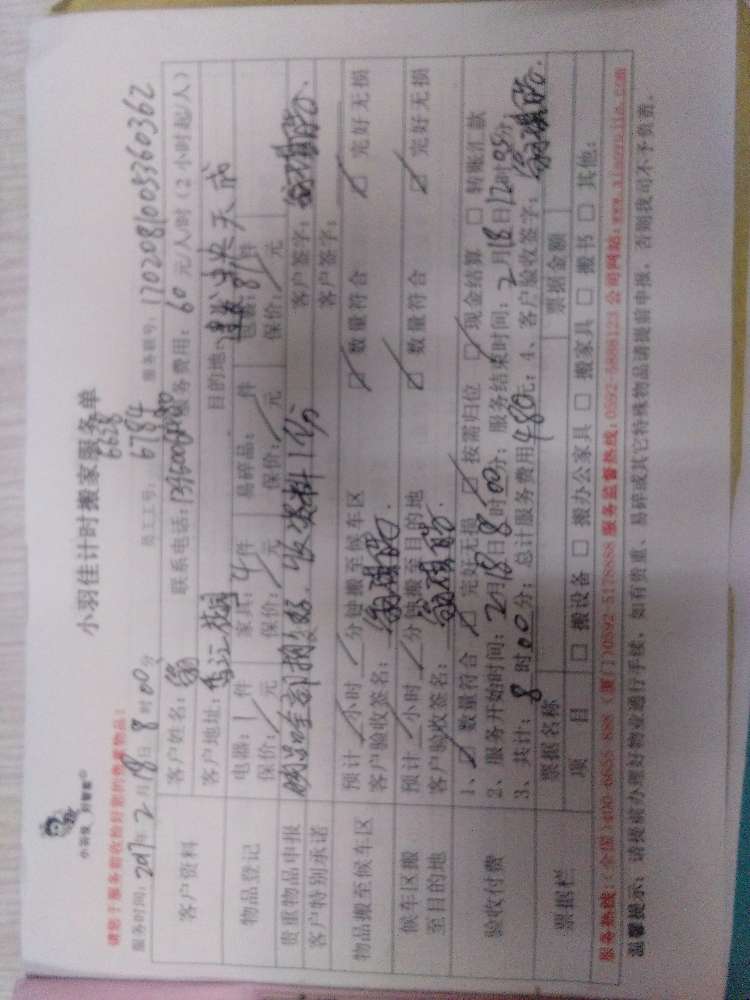 小羽佳计时搬家服务单
小羽佳 到管家
请您于服务前收拾好您的贵重物品!
6628
服务时间: 2017年2月18日8时00分 员工工号: 6784 服务联号: 1702081008360362
客户资料
客户姓名: 翁 联系电话: 服务费用: 60元/人/时 (2小时起/人)
客户地址: 目的地: 天成
物品登记
电器: 1件 家具: 4件 易碎品: 件 包裹: 81件
保价: 元 保价: 元 保价: 元 保价: 元
贵重物品申报 客户签字:
客户特别承诺 收资料1份 客户签字:
物品搬至候车区
预计 小时 分钟搬至候车区
客户验收签名: ☑ 数量符合 ☑ 完好无损
候车区搬至目的地
预计 小时 分钟搬至目的地
客户验收签名: ☑ 数量符合 ☑ 完好无损
验收付费
1、☑ 数量符合 ☑ 完好无损 ☑ 按需归位 ☑ 现金结算 □ 转账汇款
2、服务开始时间: 2月18日8时00分; 服务结束时间: 2月18日12时05分;
3、共计: 8时00分; 总计服务费用480元; 4、客户验收签字:
票据栏
票据名称 票据金额
项 目 □ 搬设备 □ 搬办公家具 □ 搬家具 □ 搬书 □ 其他:
服务热线: (全国)400-6655-888 (厦门)0592-5178888 服务监督热线: 0592-5888123 公司网站: www.xiaoyujia.com
温馨提示: 请提前办理好物业通行手续, 如有贵重、易碎或其它特殊物品请提前申报, 否则我司不予负责。